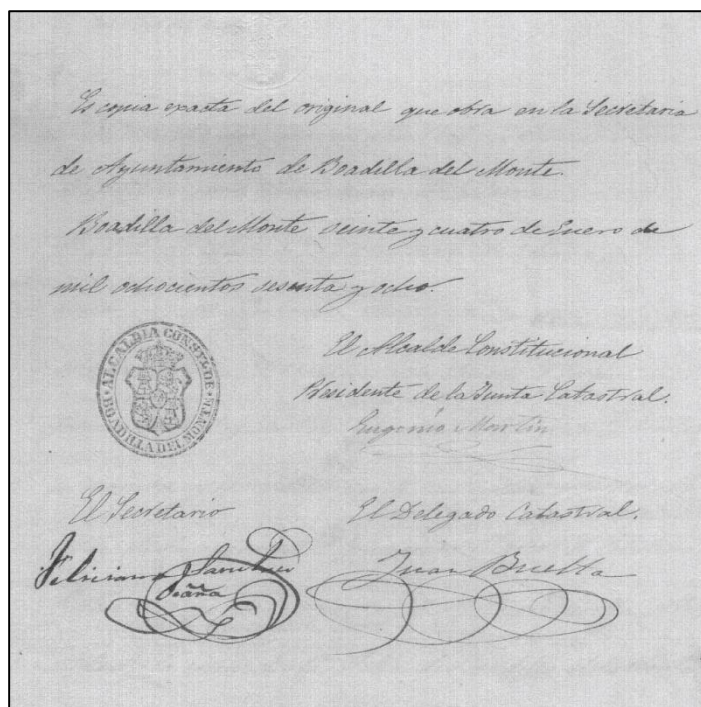 Es copia exacta del original que obra en la Secretaria
de Ayuntamiento de Boadilla del Monte.
Boadilla del Monte veinte y cuatro de Enero de
mil ochocientos sesenta y ocho.
ALCALDIA CONSTL DE
BOADILLA DEL MONTE
El Alcalde Constitucional
Presidente de la Junta Catastral.
Eugenio Martin
El Secretario
El Delegado Catastral.
Feliciano Sanchez
Juan